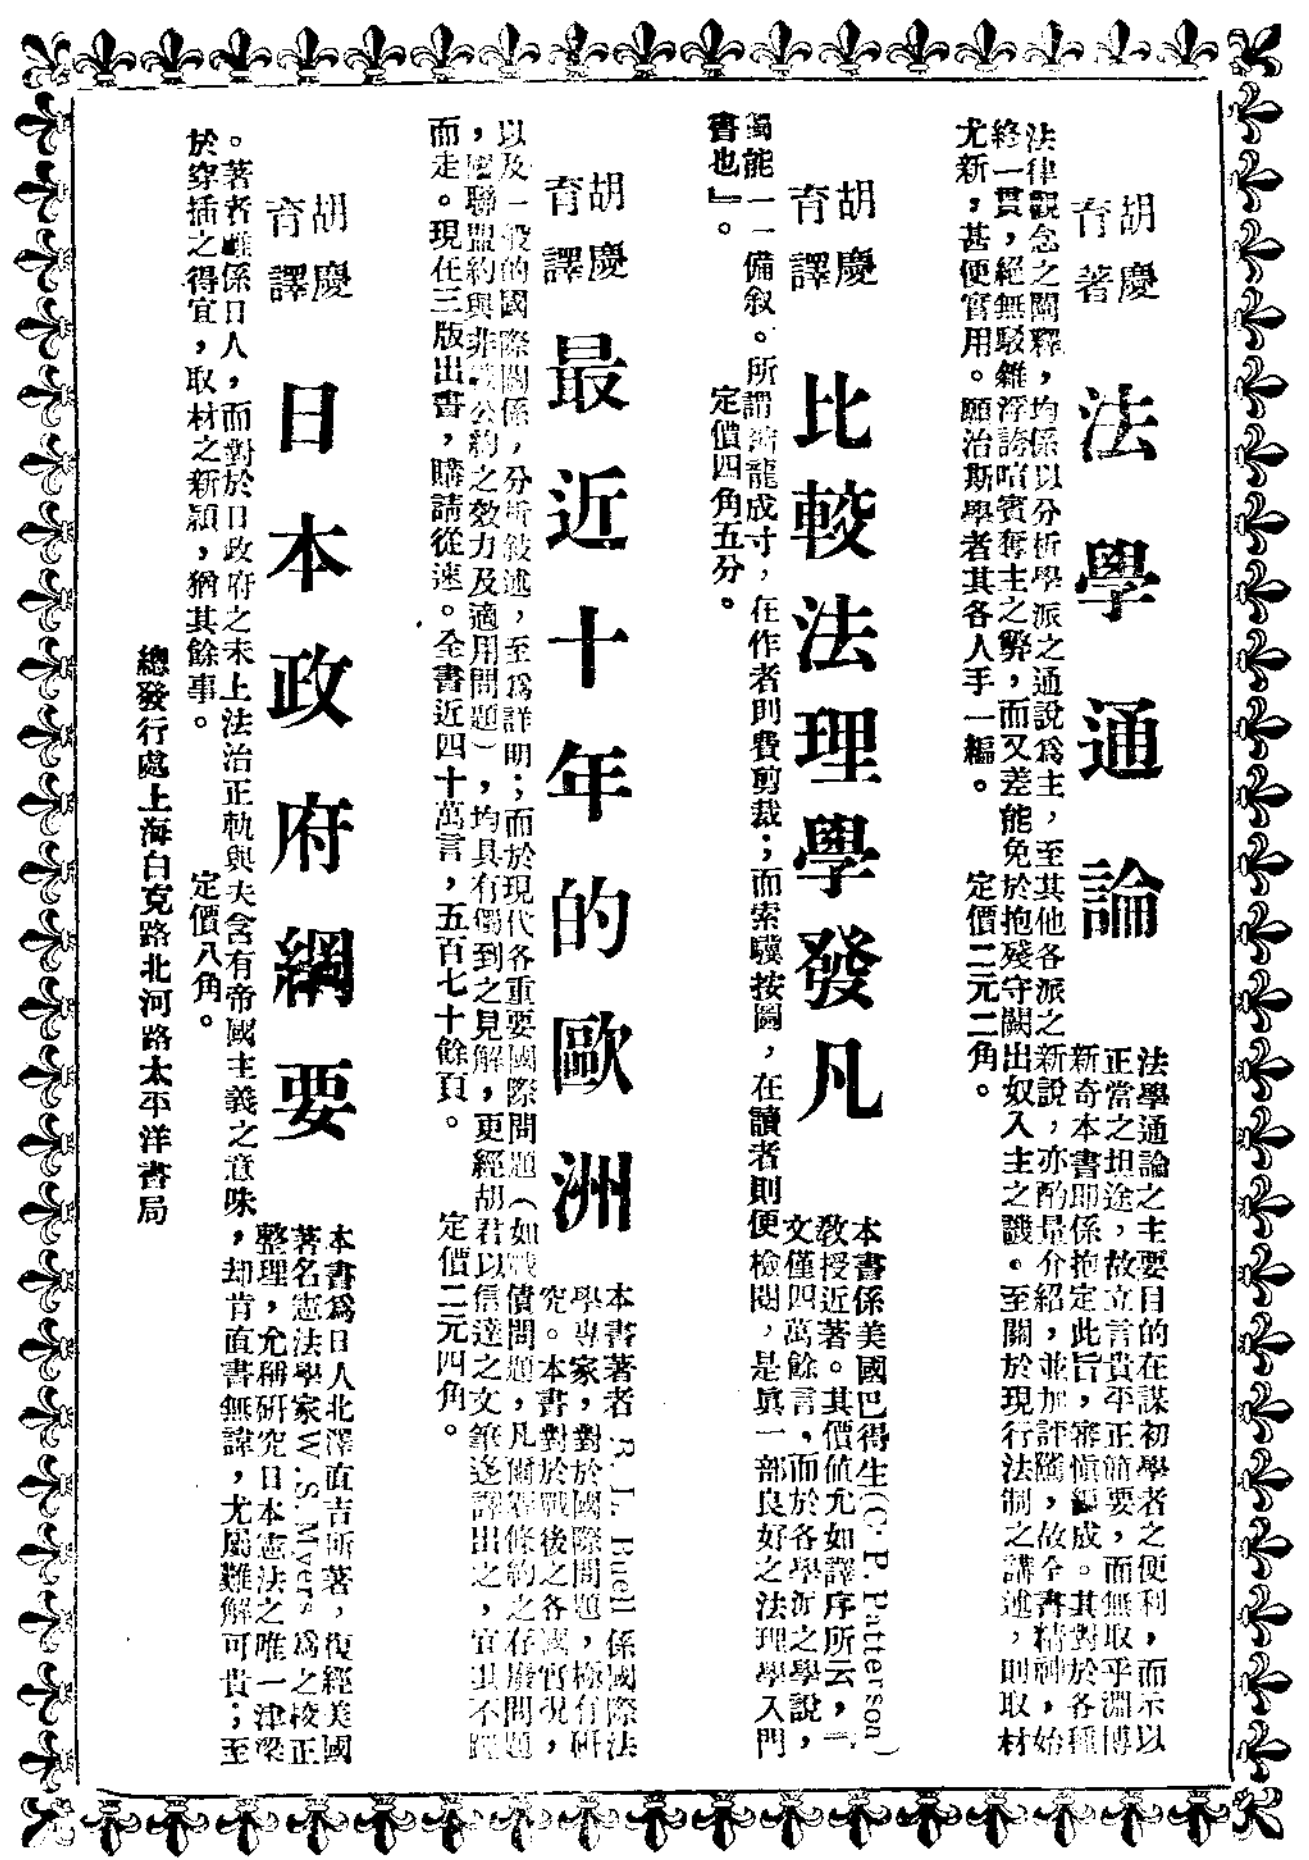 胡慶
育著
法學通論
法學通論之主要目的在謀初學者之便利，而示以
正當之坦途，故立言貴平正簡要，而無取乎淵博
新奇本書即係抱定此旨，審慎編成。其對於各種
法律觀念之闡釋，均係以分析學派之通說爲主，至其他各派之新說，亦酌量介紹，並加評隲，故全書精神，始
終一貫，絕無駁雜浮誇喧賓奪主之弊，而又差能免於抱殘守闕出奴入主之譏。至關於現行法制之講述，則取材
尤新，甚便實用。願治斯學者其各人手一編。　定價二元二角。
胡慶
育譯
比較法理學發凡
本書係美國巴得生(C. P. Patterson)
教授近著。其價值尤如譯序所云，『
文僅四萬餘言，而於各學派之學說，
獨能一一備叙。所謂 龍成寸，在作者則費剪裁；而索驥按圖，在讀者則便檢閱，是眞一部良好之法理學入門
書也』。　定價四角五分。
胡慶
育譯
最近十年的歐洲
本書著者 R. L. Buell 係國際法
學專家，對於國際問題，極有研
究。本書對於戰後之各國實況，
以及一般的國際關係，分析敍述，至爲詳明；而於現代各重要國際問題（如戰債問題，凡爾賽條約之存廢問題
，國聯盟約與非戰公約之效力及適用問題），均具有獨到之見解，更經胡君以信達之文筆迻譯出之，宜其不脛
而走。現在三版出書，購請從速。全書近四十萬言，五百七十餘頁。　定價二元四角。
胡慶
育譯
日本政府綱要
本書爲日人北澤直吉所著，復經美國
著名憲法學家W. S. Myers爲之校正
整理，允稱研究日本憲法之唯一津梁
。著者雖係日人，而對於日政府之未上法治正軌與夫含有帝國主義之意味，却肯直書無諱，尤屬難解可貴；至
於穿插之得宜，取材之新穎，猶其餘事。　定價八角。
總發行處上海白克路北河路太平洋書局